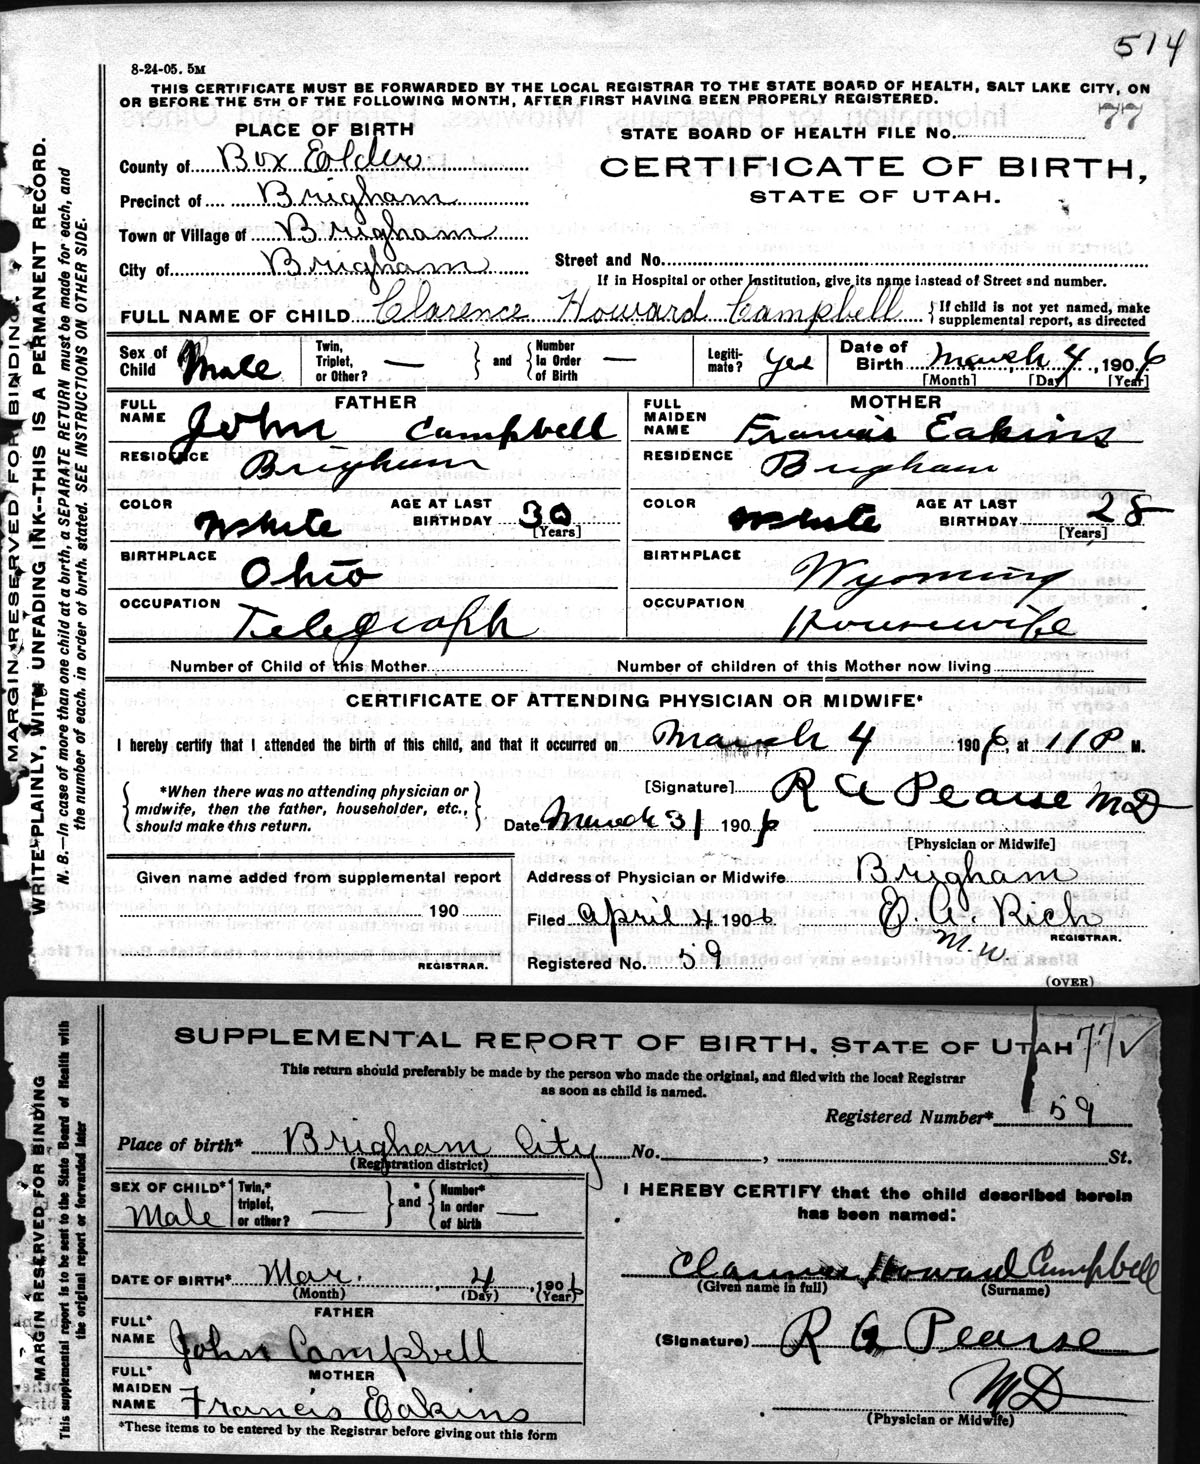 514
8-24-05. 5M
THIS CERTIFICATE MUST BE FORWARDED BY THE LOCAL REGISTRAR TO THE STATE BOARD OF HEALTH, SALT LAKE CITY, ON
OR BEFORE THE 5TH OF THE FOLLOWING MONTH, AFTER FIRST HAVING BEEN PROPERLY REGISTERED.
77
MARGIN RESERVED FOR BINDING.
WRITE PLAINLY, WITH UNFADING INK--THIS IS A PERMANENT RECORD.
N. B.—In case of more than one child at a birth, a SEPARATE RETURN must be made for each, and
the number of each, in order of birth, stated. SEE INSTRUCTIONS ON OTHER SIDE.
PLACE OF BIRTH
STATE BOARD OF HEALTH FILE No.
County of Box Elder
CERTIFICATE OF BIRTH,
Precinct of Brigham
STATE OF UTAH.
Town or Village of Brigham
City of Brigham
Street and No.
If in Hospital or other Institution, give its name instead of Street and number.
FULL NAME OF CHILD Clarence Howard Campbell { If child is not yet named, make
supplemental report, as directed
Sex of Child Male
Twin, Triplet, or Other? — } and { Number in Order of Birth —
Legitimate? Yes
Date of Birth March 4, 1906
[Month] [Day] [Year]
FATHER
FULL NAME John Campbell
RESIDENCE Brigham
COLOR White AGE AT LAST BIRTHDAY 30
[Years]
BIRTHPLACE Ohio
OCCUPATION Telegraph
MOTHER
FULL MAIDEN NAME Francis Eakins
RESIDENCE Brigham
COLOR White AGE AT LAST BIRTHDAY 28
[Years]
BIRTHPLACE Wyoming
OCCUPATION Housewife
Number of Child of this Mother Number of children of this Mother now living
CERTIFICATE OF ATTENDING PHYSICIAN OR MIDWIFE*
I hereby certify that I attended the birth of this child, and that it occurred on March 4 1906 at 11 P M.
{ *When there was no attending physician or
midwife, then the father, householder, etc.,
should make this return. }
[Signature] R A Pearse MD
Date March 31 1906
[Physician or Midwife]
Given name added from supplemental report
190
REGISTRAR.
Address of Physician or Midwife Brigham
Filed April 4 1906 E. A. Rich
M. W. REGISTRAR.
Registered No. 59
(OVER)
MARGIN RESERVED FOR BINDING
This supplemental report is to be sent to the State Board of Health with
the original report or forwarded later
SUPPLEMENTAL REPORT OF BIRTH, STATE OF UTAH 77 ✓
This return should preferably be made by the person who made the original, and filed with the local Registrar
as soon as child is named.
Registered Number* 59
Place of birth* Brigham City No. , St.
(Registration district)
SEX OF CHILD* Male
Twin,* triplet, or other? — } and { Number* in order of birth —
DATE OF BIRTH* Mar. 4, 1906
(Month) (Day) (Year)
FATHER
FULL* NAME John Campbell
MOTHER
FULL* MAIDEN NAME Francis Eakins
*These items to be entered by the Registrar before giving out this form
I HEREBY CERTIFY that the child described herein
has been named:
Clarence Howard Campbell
(Given name in full) (Surname)
(Signature) R A Pearse
MD
(Physician or Midwife)